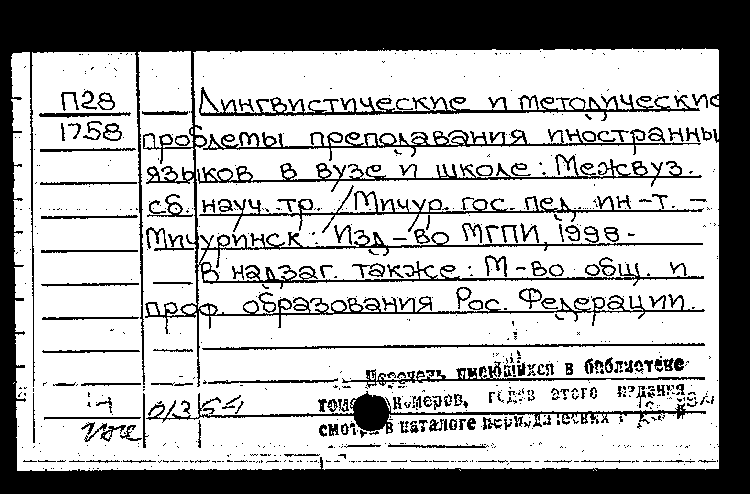 П28 Лингвистические и методические
1758 проблемы преподавания иностранны
языков в вузе и школе: Межвуз.
сб. науч. тр. / Мичур. гос. пед. ин-т. –
Мичуринск: Изд-во МГПИ, 1998-
В надзаг. также: М-во общ. и
проф. образования Рос. Федерации.
Перечень имеющихся в библиотеке
томов, номеров, годов этого издания
смотри в каталоге периодических